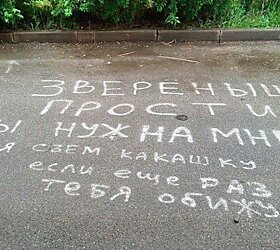 ЗВЕРЕНЫШ
ПРОСТИ
НУЖНА МНЕ
СЪЕМ КАКАШКУ
ЕСЛИ ЕЩЕ РАЗ
ТЕБЯ ОБИЖУ